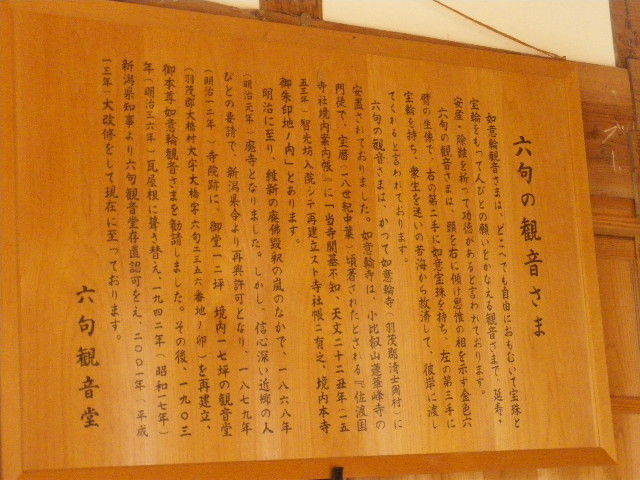 六句の観音さま
如意輪観音さまは、どこへでも自由におもむいて宝珠と
宝輪をもって人びとの願いをかなえる観音さまで、延寿・
安産・除難を祈って功徳があると言われております。
六句の観音さまは、頭を右に傾け思惟の相を示す金色六
臂の坐像で、右の第二手に如意宝珠を持ち、左の第三手に
宝輪を持ち、衆生を迷いの苦海から救済して、彼岸に渡し
てくれると言われております。
六句の観音さまは、かつて如意輪寺(羽茂郡清士岡村)に
安置されておりました。如意輪寺は、小比叡山蓮華峰寺の
門徒で、宝暦(一八世紀中葉)頃著されたとされる『佐渡国
寺社境内案内帳』に「当寺開基不知、天文二十二丑年(一五
五三年)智光坊入院シテ再建立スト寺社帳ニ有之、境内本寺
御朱印地ノ内」とあります。
明治に至り、維新の廃佛毀釈の嵐のなかで、一八六八年
(明治元年)廃寺となりました。しかし、信心深い近郷の人
びとの要請で、新潟県令より再興許可となり、一八七九年
(明治一二年)寺院跡に、御堂一二坪 境内一七坪の観音堂
(羽茂郡大橋村大字大橋字六句二三五六番地ノ卯)を再建立、
御本尊如意輪観音さまを勧請しました。その後、一九〇三
年(明治三六年)瓦屋根に葺き替え、一九四二年(昭和一七年)
新潟県知事より六句観音堂存置認可をえ、二〇〇一年(平成
一三年)大改修をして現在に至っております。
六句観音堂